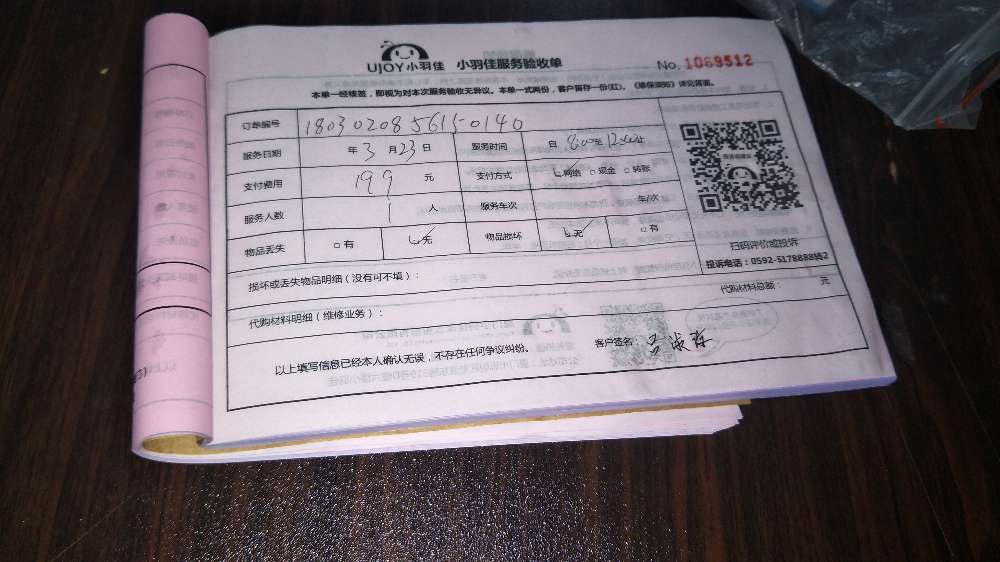 UJOY小羽佳 小羽佳服务验收单 No. 1069512
本单一经核签，即视为对本次服务验收无异议。本单一式两份，客户留存一份(红)。《维保须知》详见背面。
订单编号 180302085615-0140
服务日期 年 3 月 23 日 服务时间 自 8:00 至 12:00 止
支付费用 199 元 支付方式 网络 □ 现金 □ 转账
服务人数 1 人 服务车次 车/次
物品丢失 □ 有 无 物品损坏 无 □ 有
扫码评价或投诉
投诉电话：0592-5178888转2
损坏或丢失物品明细（没有可不填）：
代购材料明细（维修业务）： 代购材料总额： 元
以上填写信息已经本人确认无误，不存在任何争议纠纷。 客户签名：